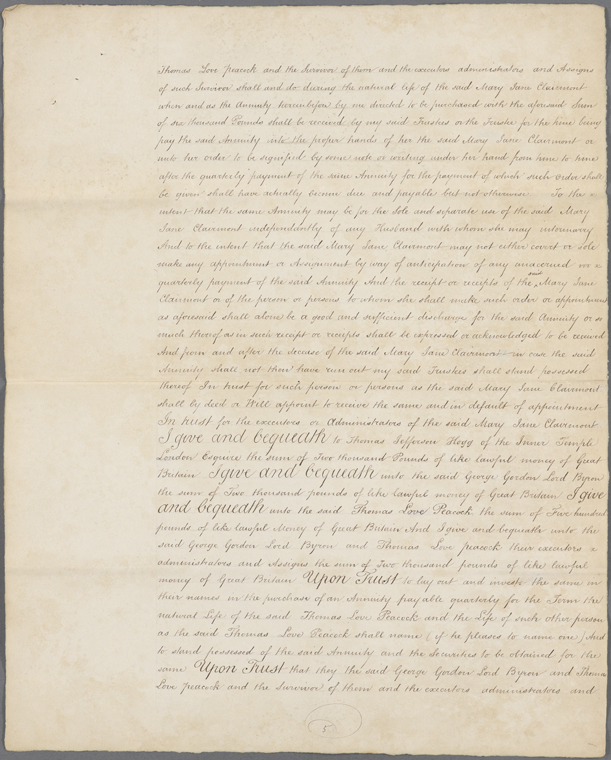 Thomas Love peacock and the Survivor of them and the executors administrators and Assigns
of such Survivor shall and do during the natural life of the said Mary Jane Clairmont
when and as the Annuity hereinbefore by me directed to be purchased with the aforesaid Sum
of six thousand Pounds shall be received by my said Trustees or the Trustee for the time being
pay the said Annuity into the proper hands of her the said Mary Jane Clairmont or
unto her order to be signified by some note or writing under her hand from time to time
after the quarterly payment of the same Annuity for the payment of which such order shall
be given shall have actually become due and payable but not otherwise To the x
intent that the same Annuity may be for the Sole and separate use of the said Mary
Jane Clairmont independantly of any Husband with whom she may intermarry
And to the intent that the said Mary Jane Clairmont may not either covert or sole
make any appointment or Assignment by way of anticipation of any unaccrued x
quarterly payment of the said Annuity And the receipt or receipts of the said Mary Jane
Clairmont or of the person or persons to whom she shall make such order or appointment
as aforesaid shall alone be a good and sufficient discharge for the said Annuity or so
much thereof as in such receipt or receipts shall be expressed or acknowledged to be received
And from and after the decease of the said Mary Jane Clairmont in case the said
Annuity shall not then have run out my said Trustees shall stand possessed
thereof In trust for such person or persons as the said Mary Jane Clairmont
shall by deed or Will appoint to receive the same and in default of appointment
In trust for the executors or Administrators of the said Mary Jane Clairmont
I give and bequeath to Thomas Jefferson Hogg of the Inner Temple
London Esquire the sum of Two thousand Pounds of like lawful money of Great
Britain I give and bequeath unto the said George Gordon Lord Byron
the sum of Two thousand pounds of like lawful money of Great Britain I give
and bequeath unto the said Thomas Love Peacock the sum of Five hundred
pounds of like lawful Money of Great Britain And I give and bequeath unto the
said George Gordon Lord Byron and Thomas Love peacock their executors x
administrators and Assigns the sum of Two thousand pounds of like lawful
money of Great Britain Upon Trust to lay out and invest the same in
their names in the purchase of an Annuity payable quarterly for the Term the
natural Life of the said Thomas Love Peacock and the Life of such other person
as the said Thomas Love Peacock shall name (if he pleases to name one) And
to stand possessed of the said Annuity and the Securities to be obtained for the
same Upon Trust that they the said George Gordon Lord Byron and Thomas
Love peacock and the Survivor of them and the executors administrators and
5